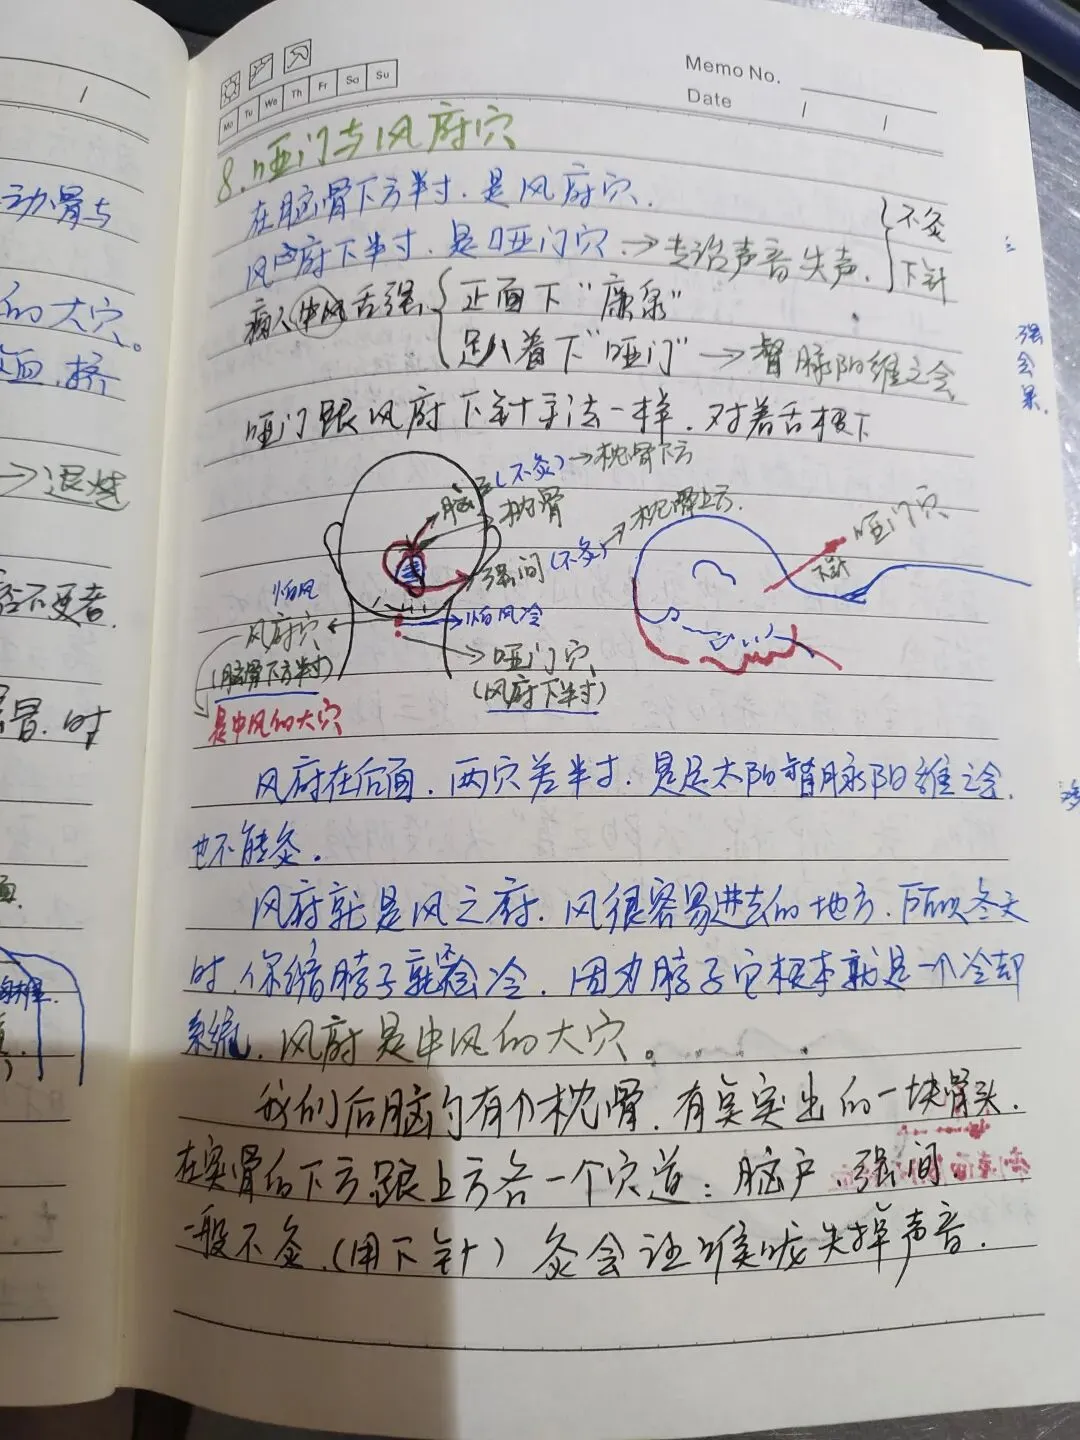 Memo No.
Date / /
Mo Tu We Th Fr Sa Su
8.哑门与风府穴
在脑骨下方半寸.是风府穴.
风府下半寸.是哑门穴→专治声音失声.
不灸
下针
病人中风舌强
正面下“廉泉”
趴着下“哑门”→督脉阳维之会
哑门跟风府下针手法一样.对着舌根下
脑户(不灸)→枕骨下方
枕骨
强间(不灸)→枕骨上方.
哑门穴
下针
怕风
风府穴
怕风冷
(脑骨下方半寸)
哑门穴
(风府下半寸)
是中风的大穴
风府在后面.两穴差半寸.是足太阳督脉阳维之会.
也不能灸.
风府就是风之府.风很容易进去的地方.所以冬天
时.你缩脖子就会冷.因为脖子它根本就是一个冷却
系统.风府是中风的大穴。
我们后脑勺有个枕骨.有突出的一块骨头.
在突骨的下方跟上方各一个穴道:脑户.强间.
一般不灸.(用下针)灸会让喉咙失掉声音.
动骨与
的大穴。
→退烧
强
会